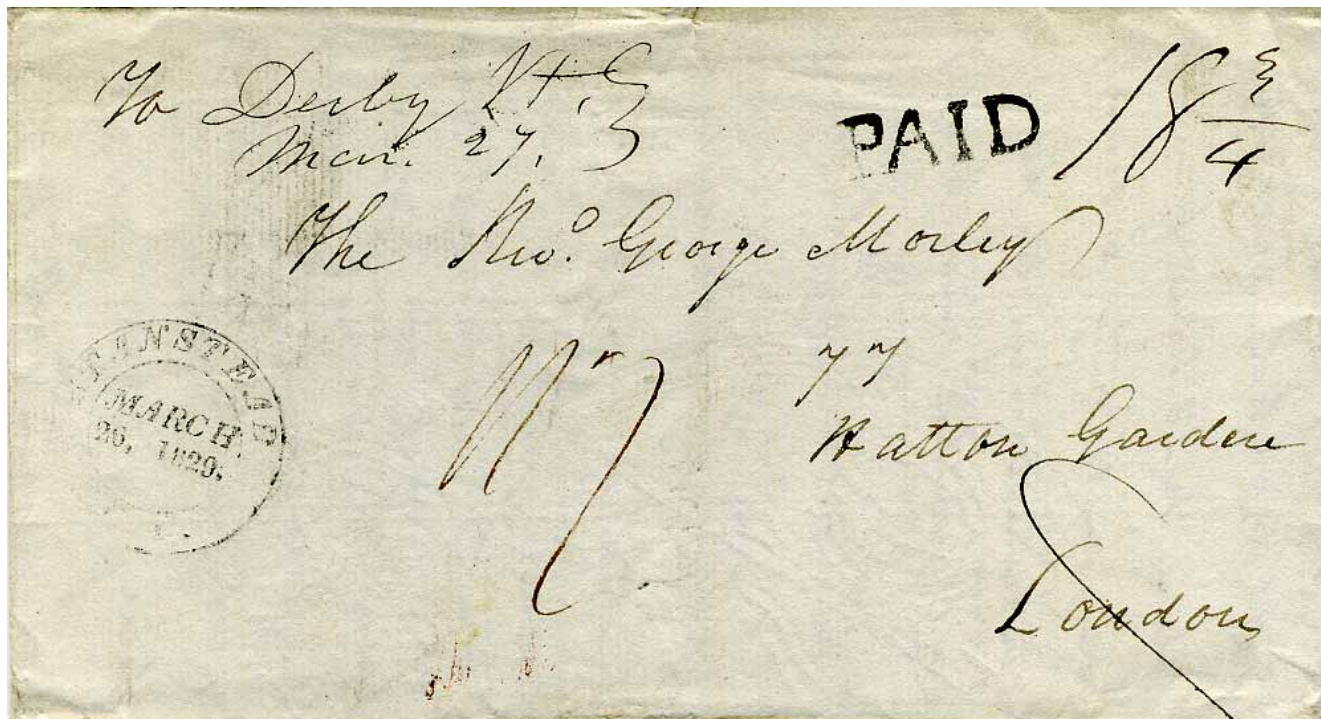 To Derby Vt.
Mar. 27.
PAID
18 3/4
The Revd. George Morley
77
Hatton Garden
London
STANSTEAD
MARCH.
26, 1829.